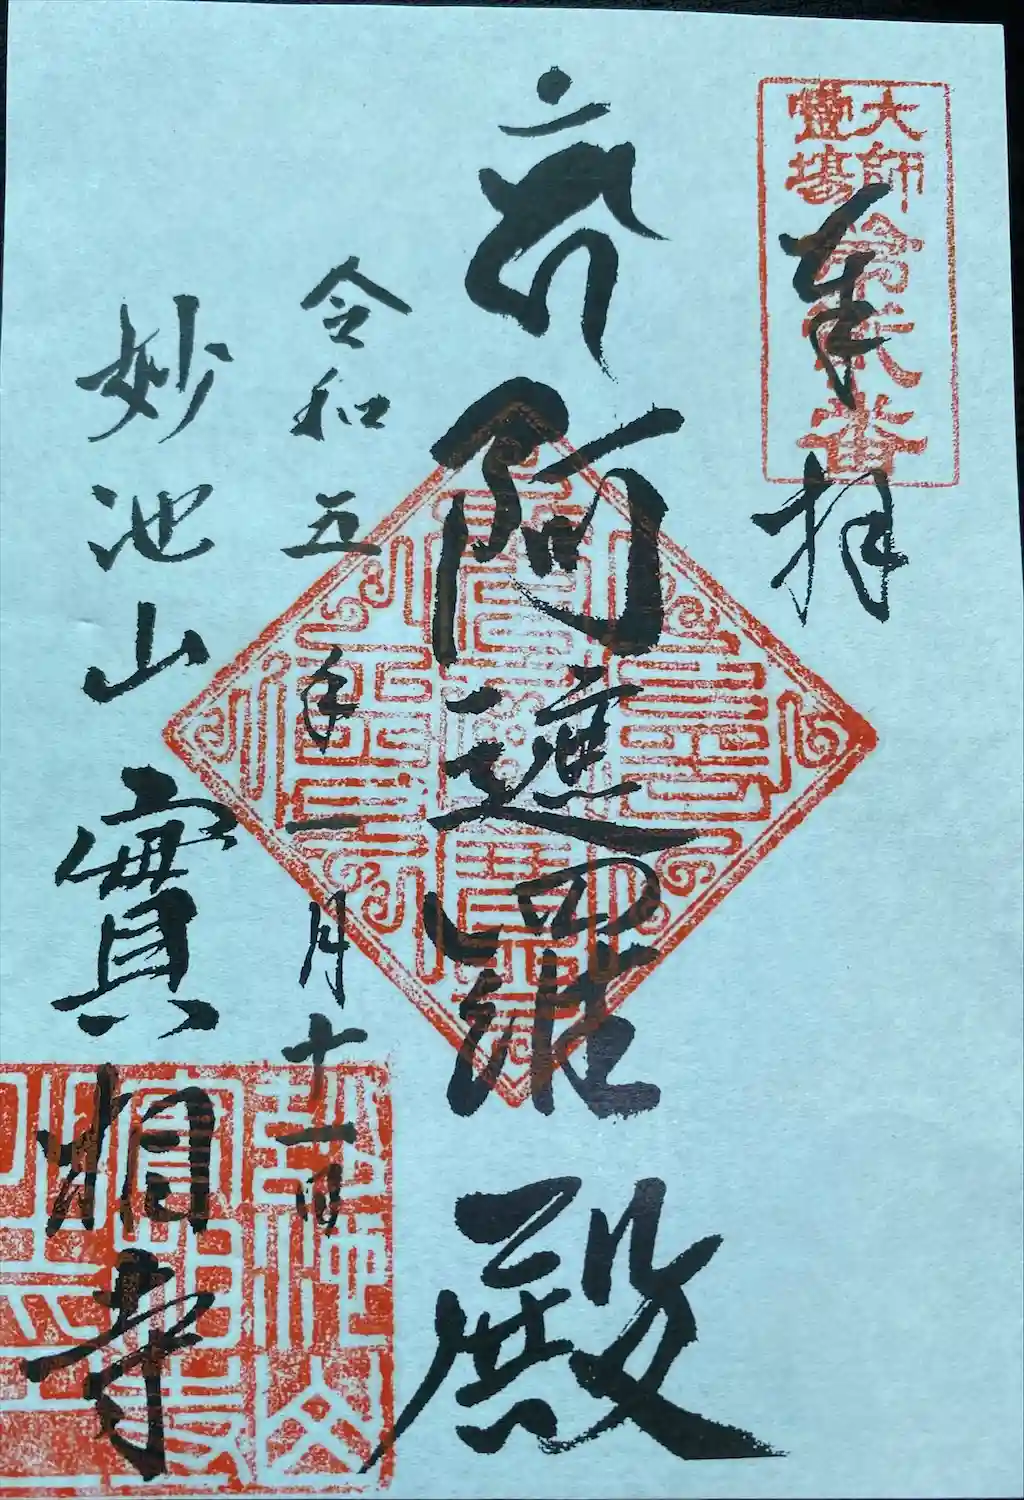 大師
霊場
第
番
奉拝
阿遮羅殿
令和五年一月十一日
妙池山實相寺